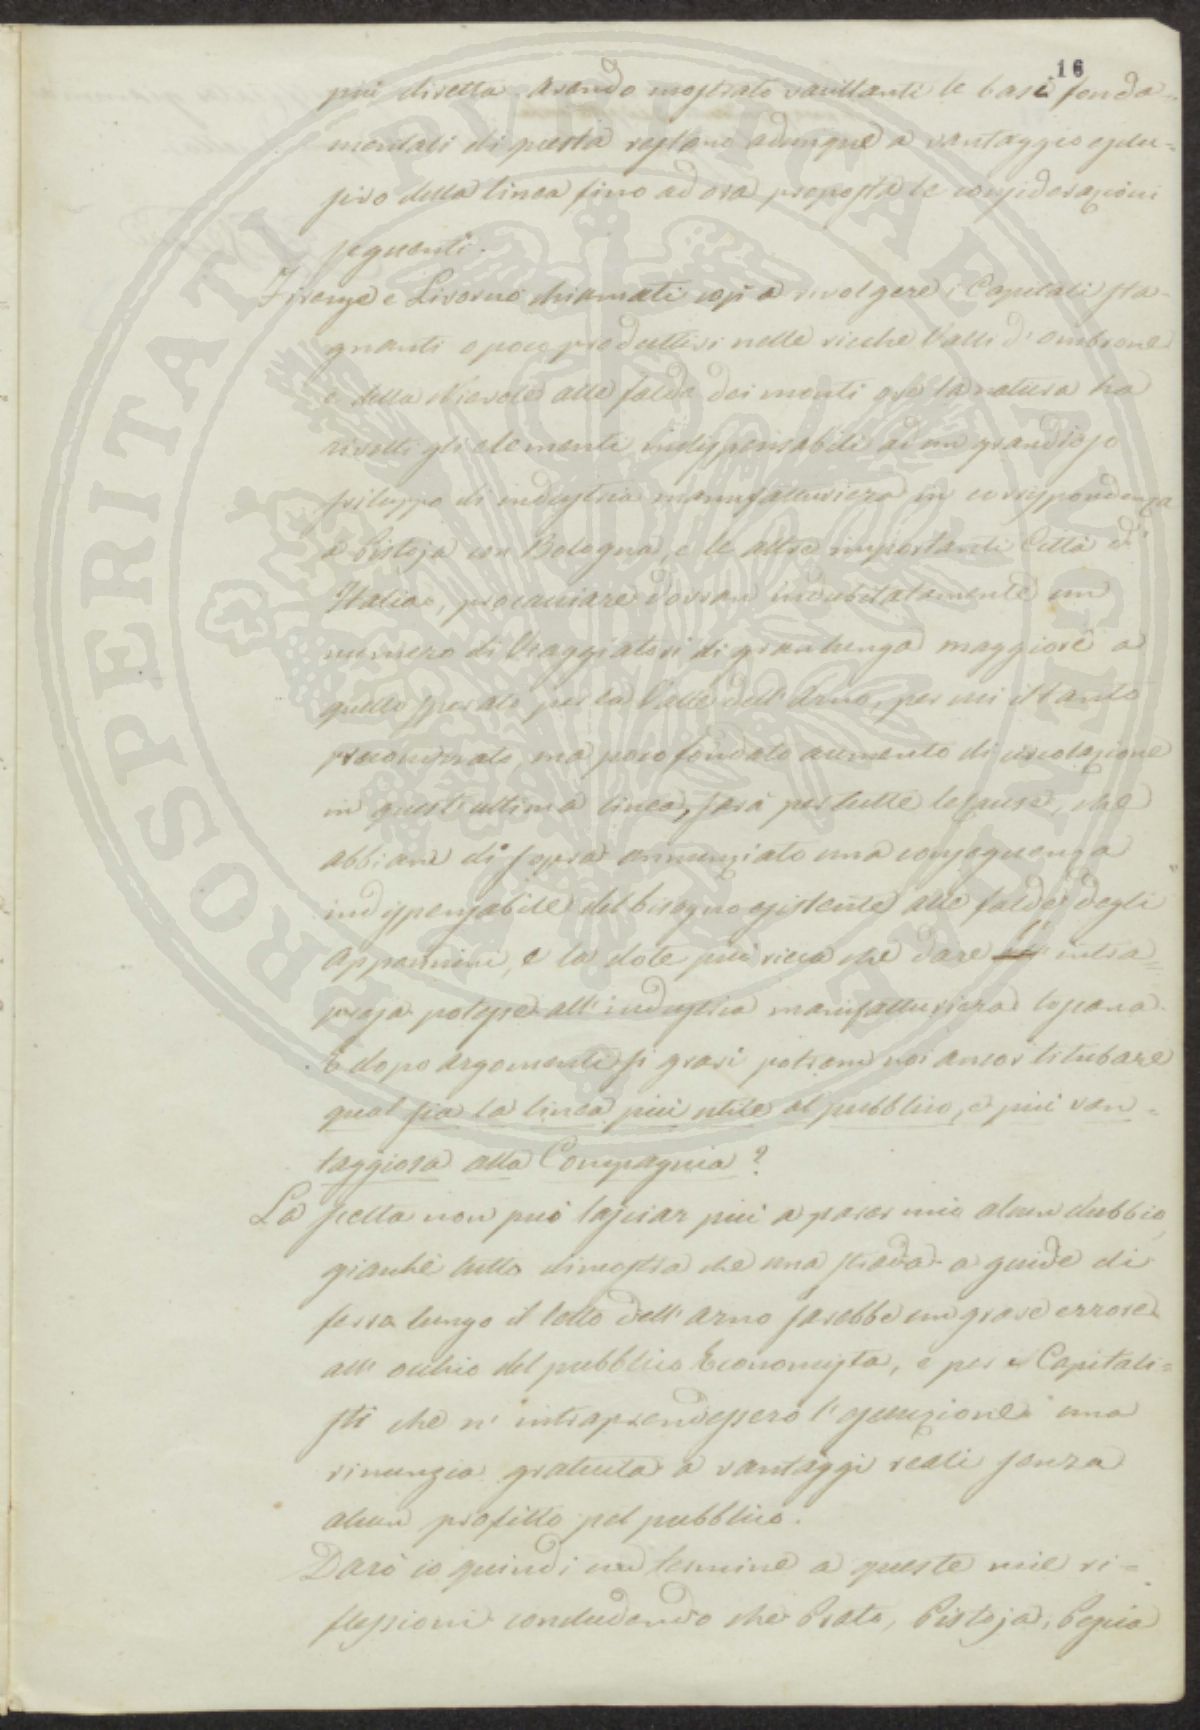 16
più diretta. Avendo mostrato vacillanti le basi fonda=
mentali di questa restano adunque a vantaggio esclu=
sivo della linea fino ad ora proposta le considerazioni
seguenti.
Firenze e Livorno chiamati così a rivolgere i Capitali sta-
gnanti e poco produttivi nelle ricche Valli d'Ombrone
e della Nievole alle falde dei monti ove la natura ha
riuniti gli elementi indispensabili ad un grandioso
sviluppo di industria manifatturiera in corrispondenza
a Pistoja con Bologna, e le altre importanti Città d'
Italia, procacciare dovran indubitatamente un
numero di Viaggiatori di gran lunga maggiore a
quello sperato per la Valle dell'Arno, per cui il tanto
preconizzato, ma poco fondato aumento di circolazione
in quest'ultima linea, sarà per tutte le cause, che
abbiam di sopra annunziato una conseguenza
indispensabile del bisogno esistente alle falde degli
Appennini, e la dote più ricca che dare l'intra=
presa potesse all'industria manifatturiera toscana.
E dopo argomenti si gravi potrem noi ancor titubare
qual sia la linea più utile al pubblico, e più van=
taggiosa alla Compagnia?
La scelta non può lasciar più a parer mio alcun dubbio,
gianchè tutto dimostra che una strada a guide di
ferro lungo il letto dell'Arno sarebbe un grave errore
all'occhio del pubblico Economista, e per i Capitali=
sti che n'intraprendessero l'esecuzione una
rinunzia gratuita a vantaggi reali senza
alcun profitto pel pubblico.
Darò io quindi un termine a queste mie ri=
flessioni concludendo che Prato, Pistoja, Pescia
SPERITATI PVBLICAE AVGENDAE PROSPERITATI